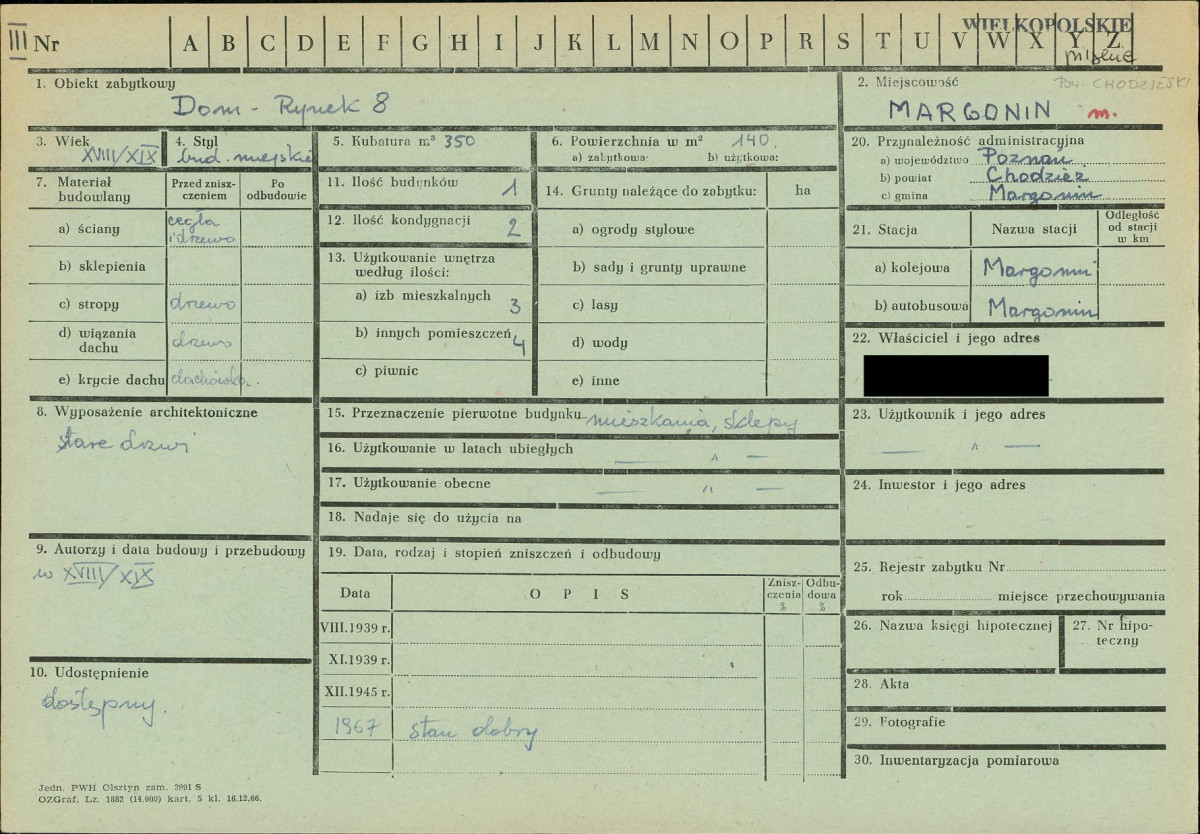 III Nr A B C D E F G H I J K L M N O P R S T U V W X Y Z
WIELKOPOLSKIE
1. Obiekt zabytkowy
Dom - Rynek 8
2. Miejscowość
Pow. CHODZIESKI
MARGONIN m.
3. Wiek
XVIII/XIX
4. Styl
bud. miejskie
5. Kubatura m³ 350
6. Powierzchnia w m² 140.
a) zabytkowa: b) użytkowa:
20. Przynależność administracyjna
a) województwo Poznań
b) powiat Chodzież
c) gmina Margonin
7. Materiał budowlany
Przed zniszczeniem
Po odbudowie
a) ściany cegła i drzewo
b) sklepienia
c) stropy drzewo
d) wiązania dachu drzewo
e) krycie dachu dachówka.
11. Ilość budynków 1
12. Ilość kondygnacji 2
13. Użytkowanie wnętrza według ilości:
a) izb mieszkalnych 3
b) innych pomieszczeń 4
c) piwnic
14. Grunty należące do zabytku: ha
a) ogrody stylowe
b) sady i grunty uprawne
c) lasy
d) wody
e) inne
21. Stacja Nazwa stacji Odległość od stacji w km
a) kolejowa Margonin
b) autobusowa Margonin
22. Właściciel i jego adres
8. Wyposażenie architektoniczne
stare drzwi
15. Przeznaczenie pierwotne budynku mieszkania, sklepy
16. Użytkowanie w latach ubiegłych — " —
17. Użytkowanie obecne — " —
18. Nadaje się do użycia na
23. Użytkownik i jego adres
— " —
24. Inwestor i jego adres
9. Autorzy i data budowy i przebudowy
w XVIII/XIX
19. Data, rodzaj i stopień zniszczeń i odbudowy
Data OPIS Zniszczenia % Odbudowa %
VIII.1939 r.
XI.1939 r.
XII.1945 r.
1967 stan dobry
25. Rejestr zabytku Nr
rok miejsce przechowywania
26. Nazwa księgi hipotecznej
27. Nr hipoteczny
10. Udostępnienie
dostępny.
28. Akta
29. Fotografie
30. Inwentaryzacja pomiarowa
Jedn. PWH Olsztyn zam. 2991 S
OZGraf. Lz. 1882 (14.000) kart. 5 kl. 16.12.66.